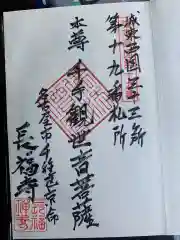 城東西国三十三所
第十九番札所
本尊 千手観世音菩薩
名古屋市千種区
長福寺